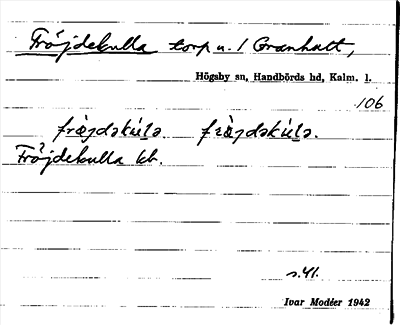 Fröjdekulla torp u. 1 Granhult,
Högsby sn, Handbörds hd, Kalm. l.
106
Fröjdekulla kb.
s. 41.
Ivar Modéer 1942